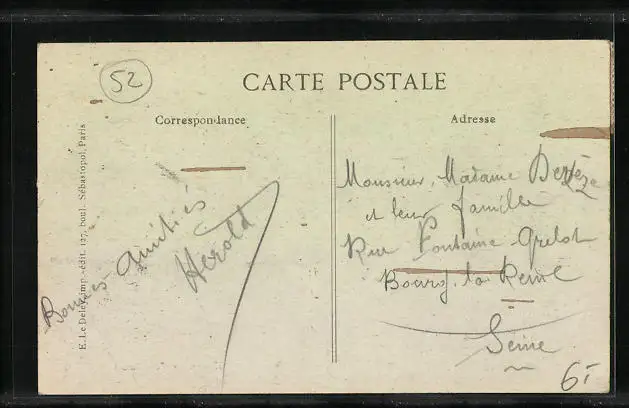 52
CARTE POSTALE
Correspondance
Adresse
E. Le Deley, imp.-édit. 127, boul. Sébastopol, Paris
Bonnes amitiés
Herold
Monsieur, Madame
et leur famille
Rue Fontaine Grelot
Bourg-la-Reine
Seine
6